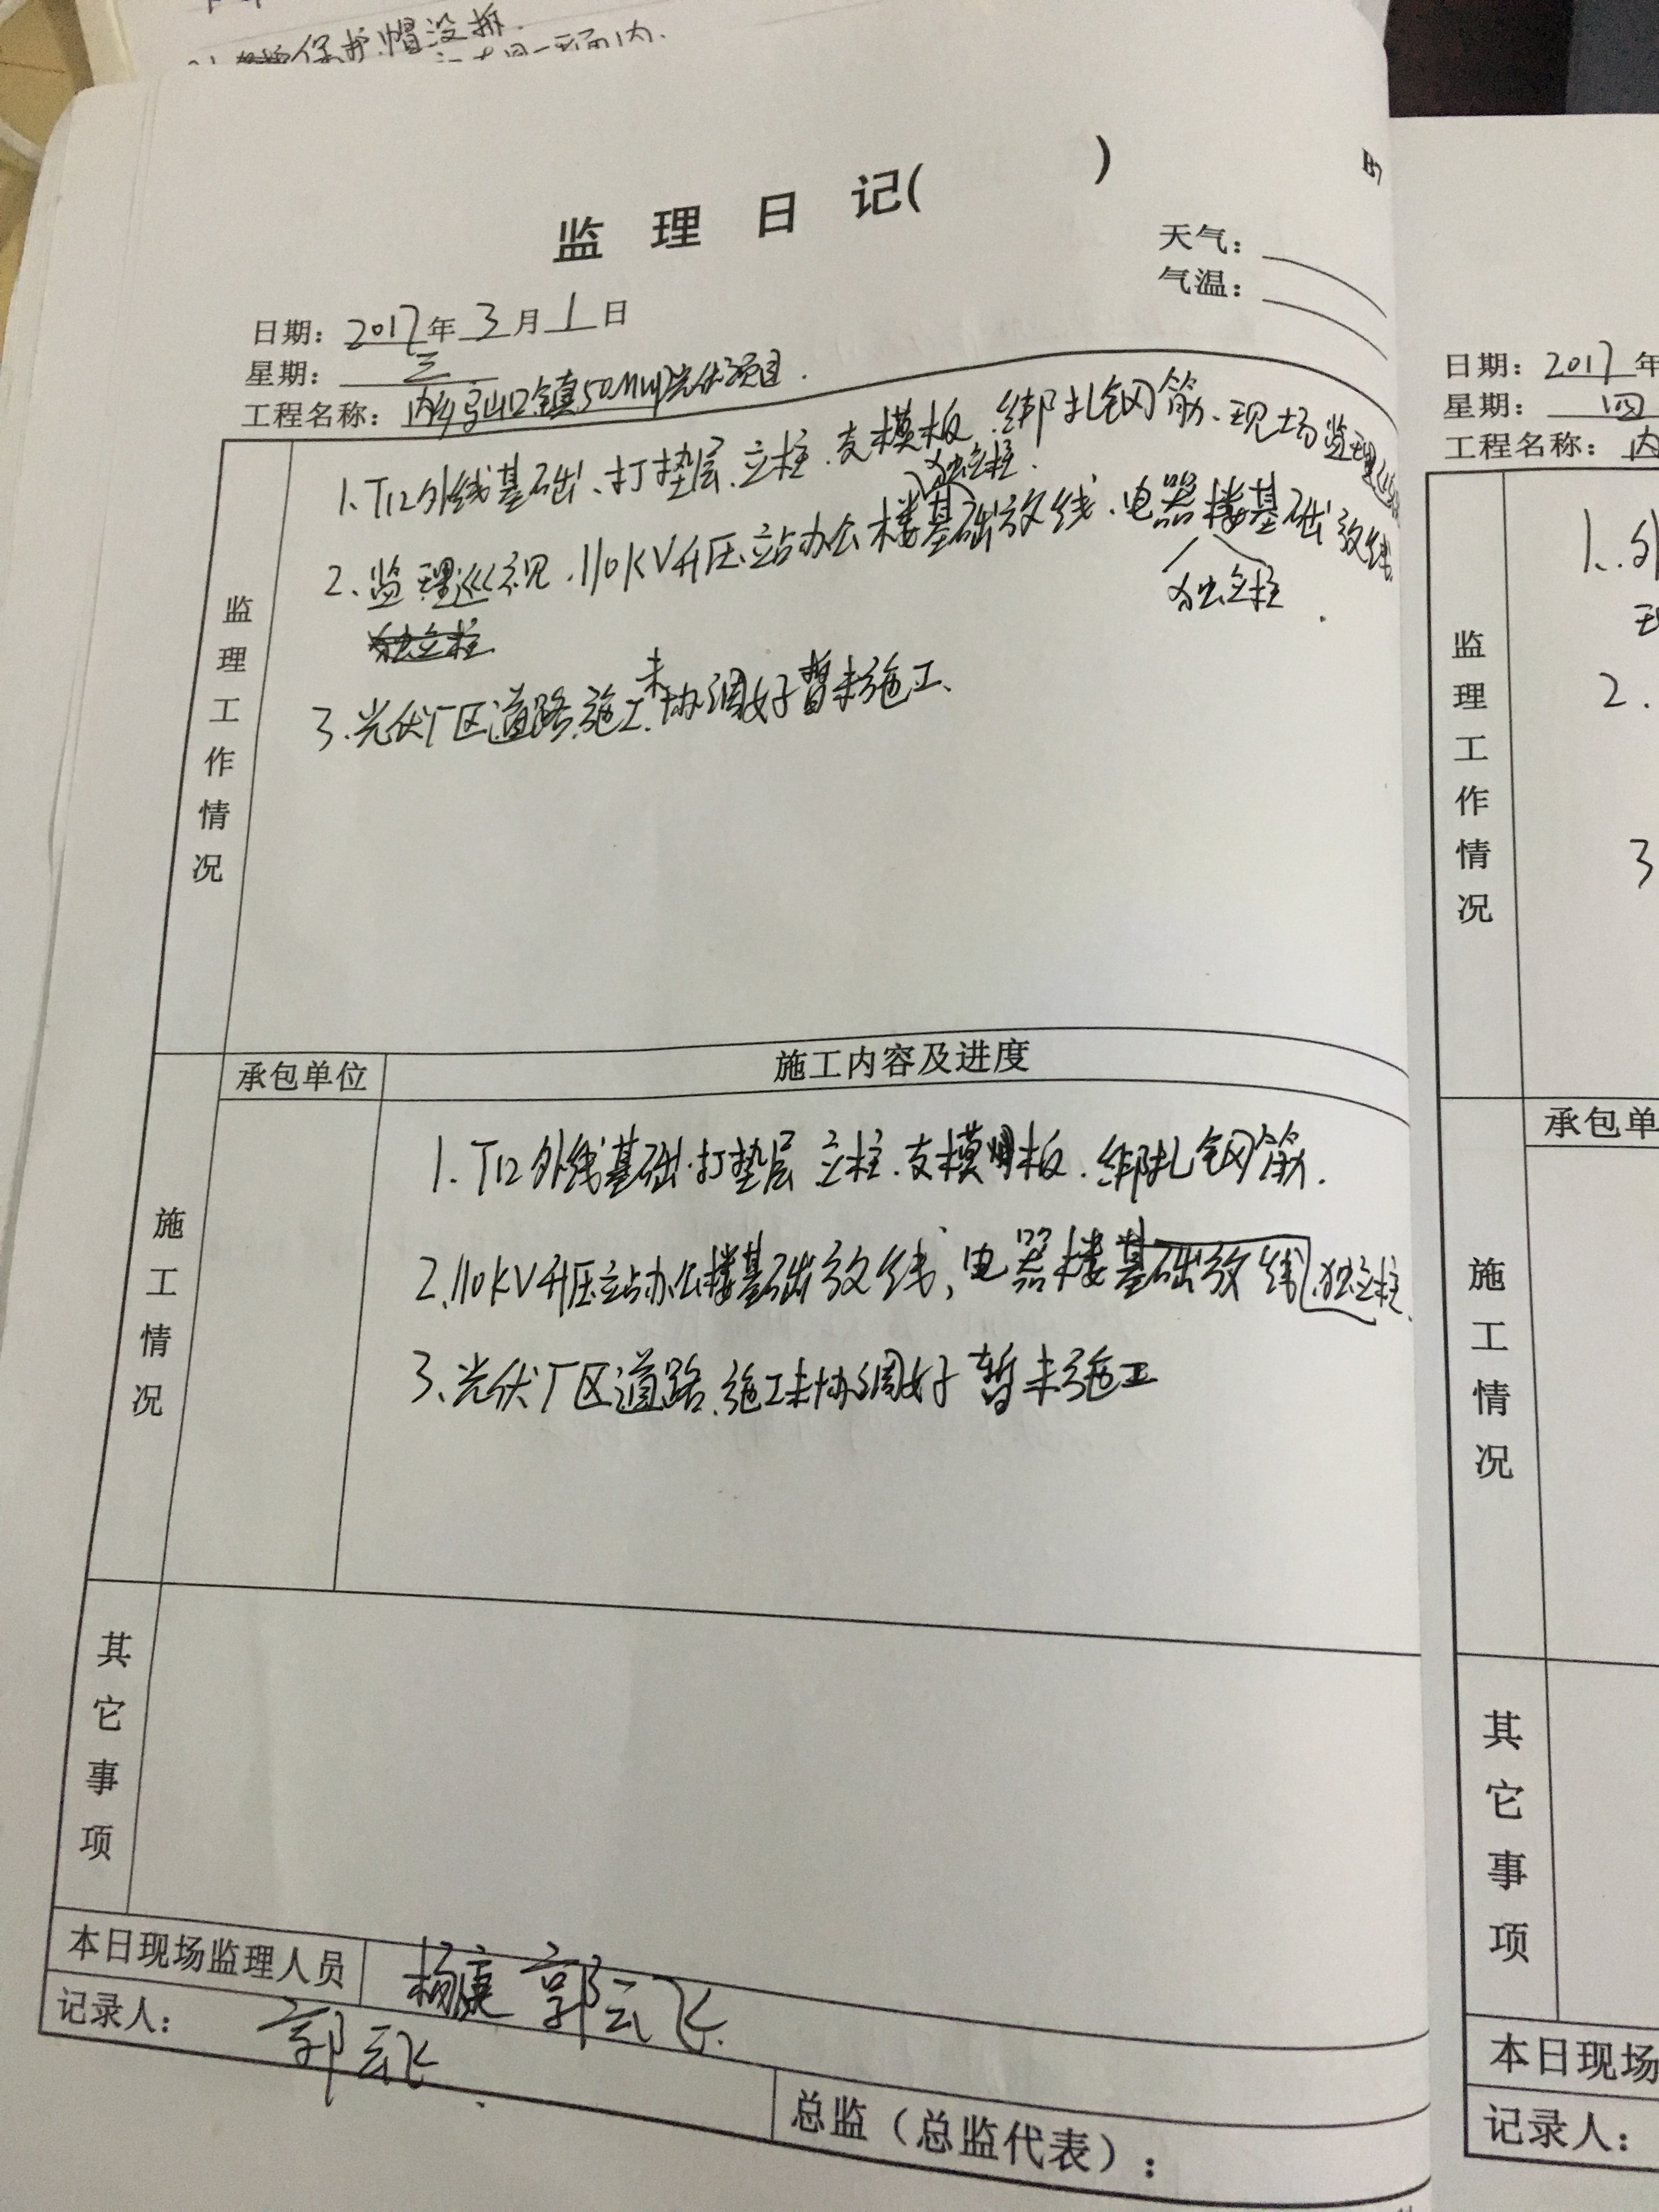 保护帽没拆.
监 理 日 记( )
B7
天气:
气温:
日期: 2017年 3 月 1 日
星期: 三
工程名称: 内乡马山口镇50MW光伏项目.
监理工作情况
1、T12外线基础、打垫层、立柱、支模板、绑扎钢筋、现场监理
独立柱.
2、监理巡视、110KV升压站办公楼基础放线、电器楼基础放线
独立柱.
独立柱
3、光伏厂区道路施工未协调好暂未施工、
承包单位 施工内容及进度
施工情况
1、T12外线基础、打垫层 立柱、支模板、绑扎钢筋.
2、110KV升压站办公楼基础放线,电器楼基础放线 独立柱.
3、光伏厂区道路、施工未协调好 暂未施工
其它事项
本日现场监理人员 杨康 郭云飞.
记录人: 郭云飞
总监(总监代表):
日期: 2017年
星期: 四
工程名称: 内
监理工作情况
1、外
现
2.
3
承包单
施工情况
其它事项
本日现场
记录人: